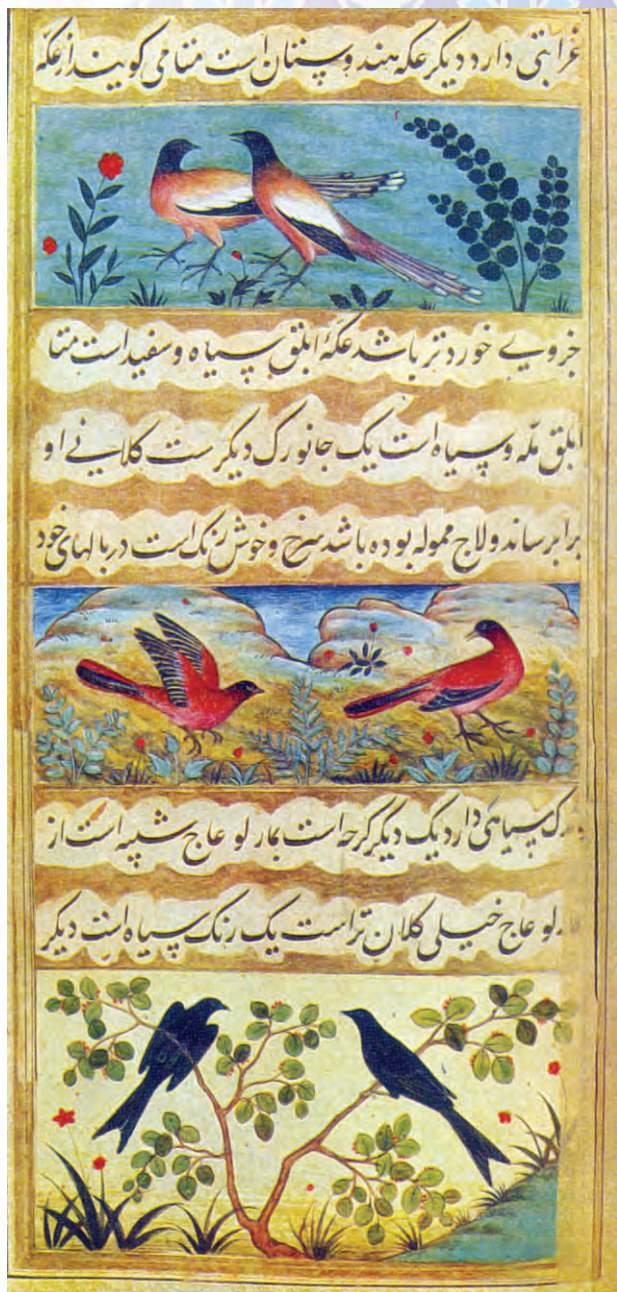 غرابتی دارد دیکر عکه هندوستان است متا می کویند از عکه
خروی خوردتر باشد عکهٔ ابلق سیاه و سفید است متا
ابلق ملّه و سیاه است یک جانورک دیکرست کلانی او
برابر ساندولاج مموله بوده باشد سرخ و خوش رنک است در بالهای خود
سیاهی دارد یک دیکر کرحه است بمارلوعاج شبیه است از
لوعاج خیلی کلان تراست یک رنک سیاه است دیکر